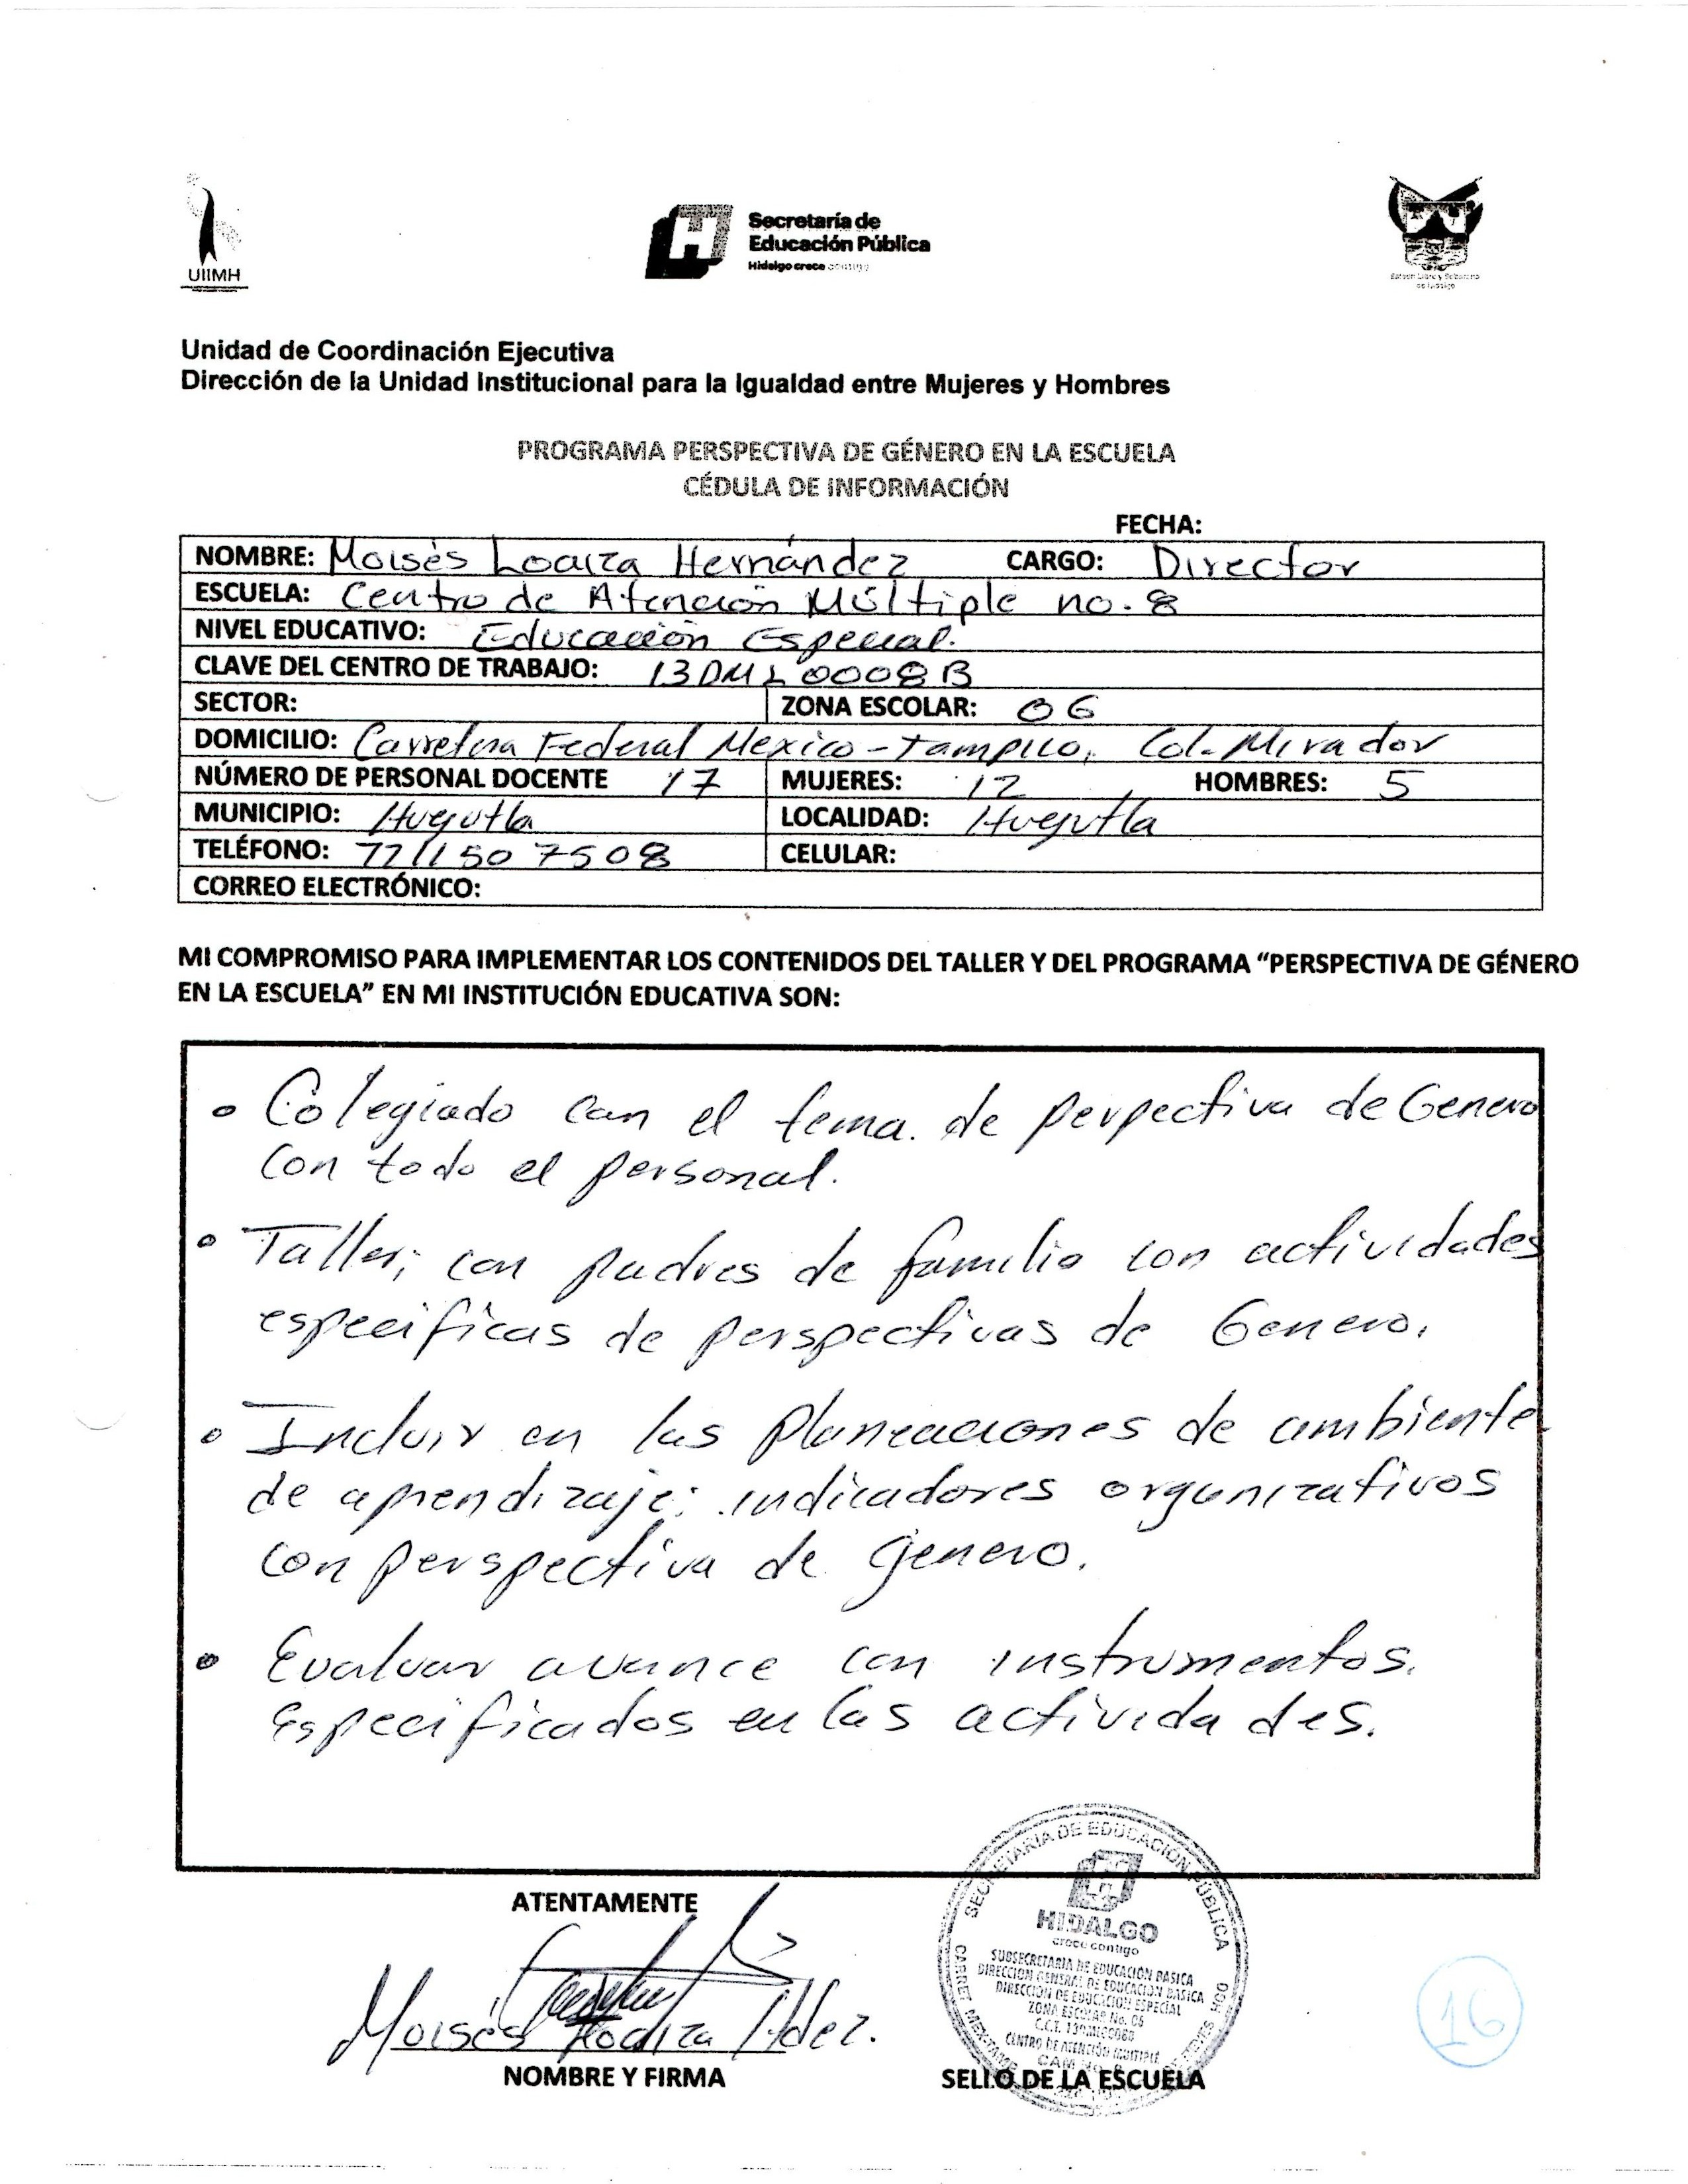 UIIMH
Secretaría de
Educación Pública
Hidalgo crece contigo
Unidad de Coordinación Ejecutiva
Dirección de la Unidad Institucional para la Igualdad entre Mujeres y Hombres
PROGRAMA PERSPECTIVA DE GÉNERO EN LA ESCUELA
CÉDULA DE INFORMACIÓN
FECHA:
NOMBRE: Moisés Loaiza Hernández CARGO: Director
ESCUELA: Centro de Atención Múltiple no. 8
NIVEL EDUCATIVO: Educación Especial.
CLAVE DEL CENTRO DE TRABAJO: 13DML0008B
SECTOR: ZONA ESCOLAR: 06
DOMICILIO: Carretera Federal Mexico-Tampico, Col. Mirador
NÚMERO DE PERSONAL DOCENTE 17 MUJERES: 12 HOMBRES: 5
MUNICIPIO: Huejutla LOCALIDAD: Huejutla
TELÉFONO: 7711507508 CELULAR:
CORREO ELECTRÓNICO:
MI COMPROMISO PARA IMPLEMENTAR LOS CONTENIDOS DEL TALLER Y DEL PROGRAMA "PERSPECTIVA DE GÉNERO
EN LA ESCUELA" EN MI INSTITUCIÓN EDUCATIVA SON:
• Colegiado con el tema. de perpectiva de Genero
con todo el personal.
• Taller; con padres de familia con actividades
especificas de perspectivas de Genero.
• Incluir en las planeaciones de ambiente
de aprendizaje: indicadores organizativos
con perspectiva de genero.
• Evaluar avance con instrumentos.
Especificados en las actividades.
ATENTAMENTE
Moisés Loaiza Hdez.
NOMBRE Y FIRMA
SECRETARIA DE EDUCACIÓN PÚBLICA
HIDALGO
crece contigo
SUBSECRETARIA DE EDUCACIÓN BASICA
DIRECCION GENERAL DE EDUCACIÓN BASICA
DIRECCIÓN DE EDUCACION ESPECIAL
ZONA ESCOLAR No.
CENTRO DE ATENCIÓN MULTIPLE
SELLO DE LA ESCUELA
16